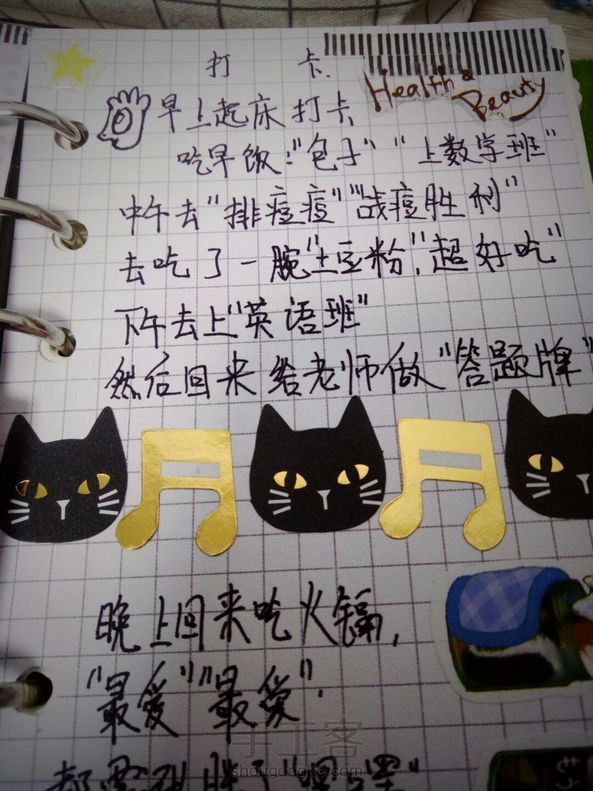 打 卡.
Health & Beauty
早上起床打卡
吃早饭:"包子" "上数学班"
中午去"排痘痘""战痘胜利"
去吃了一腕"土豆粉","超好吃"
下午去上"英语班"
然后回来给老师做"答题牌"
晚上回来吃火锅,
"最爱""最爱".
手工客
shougongke.com